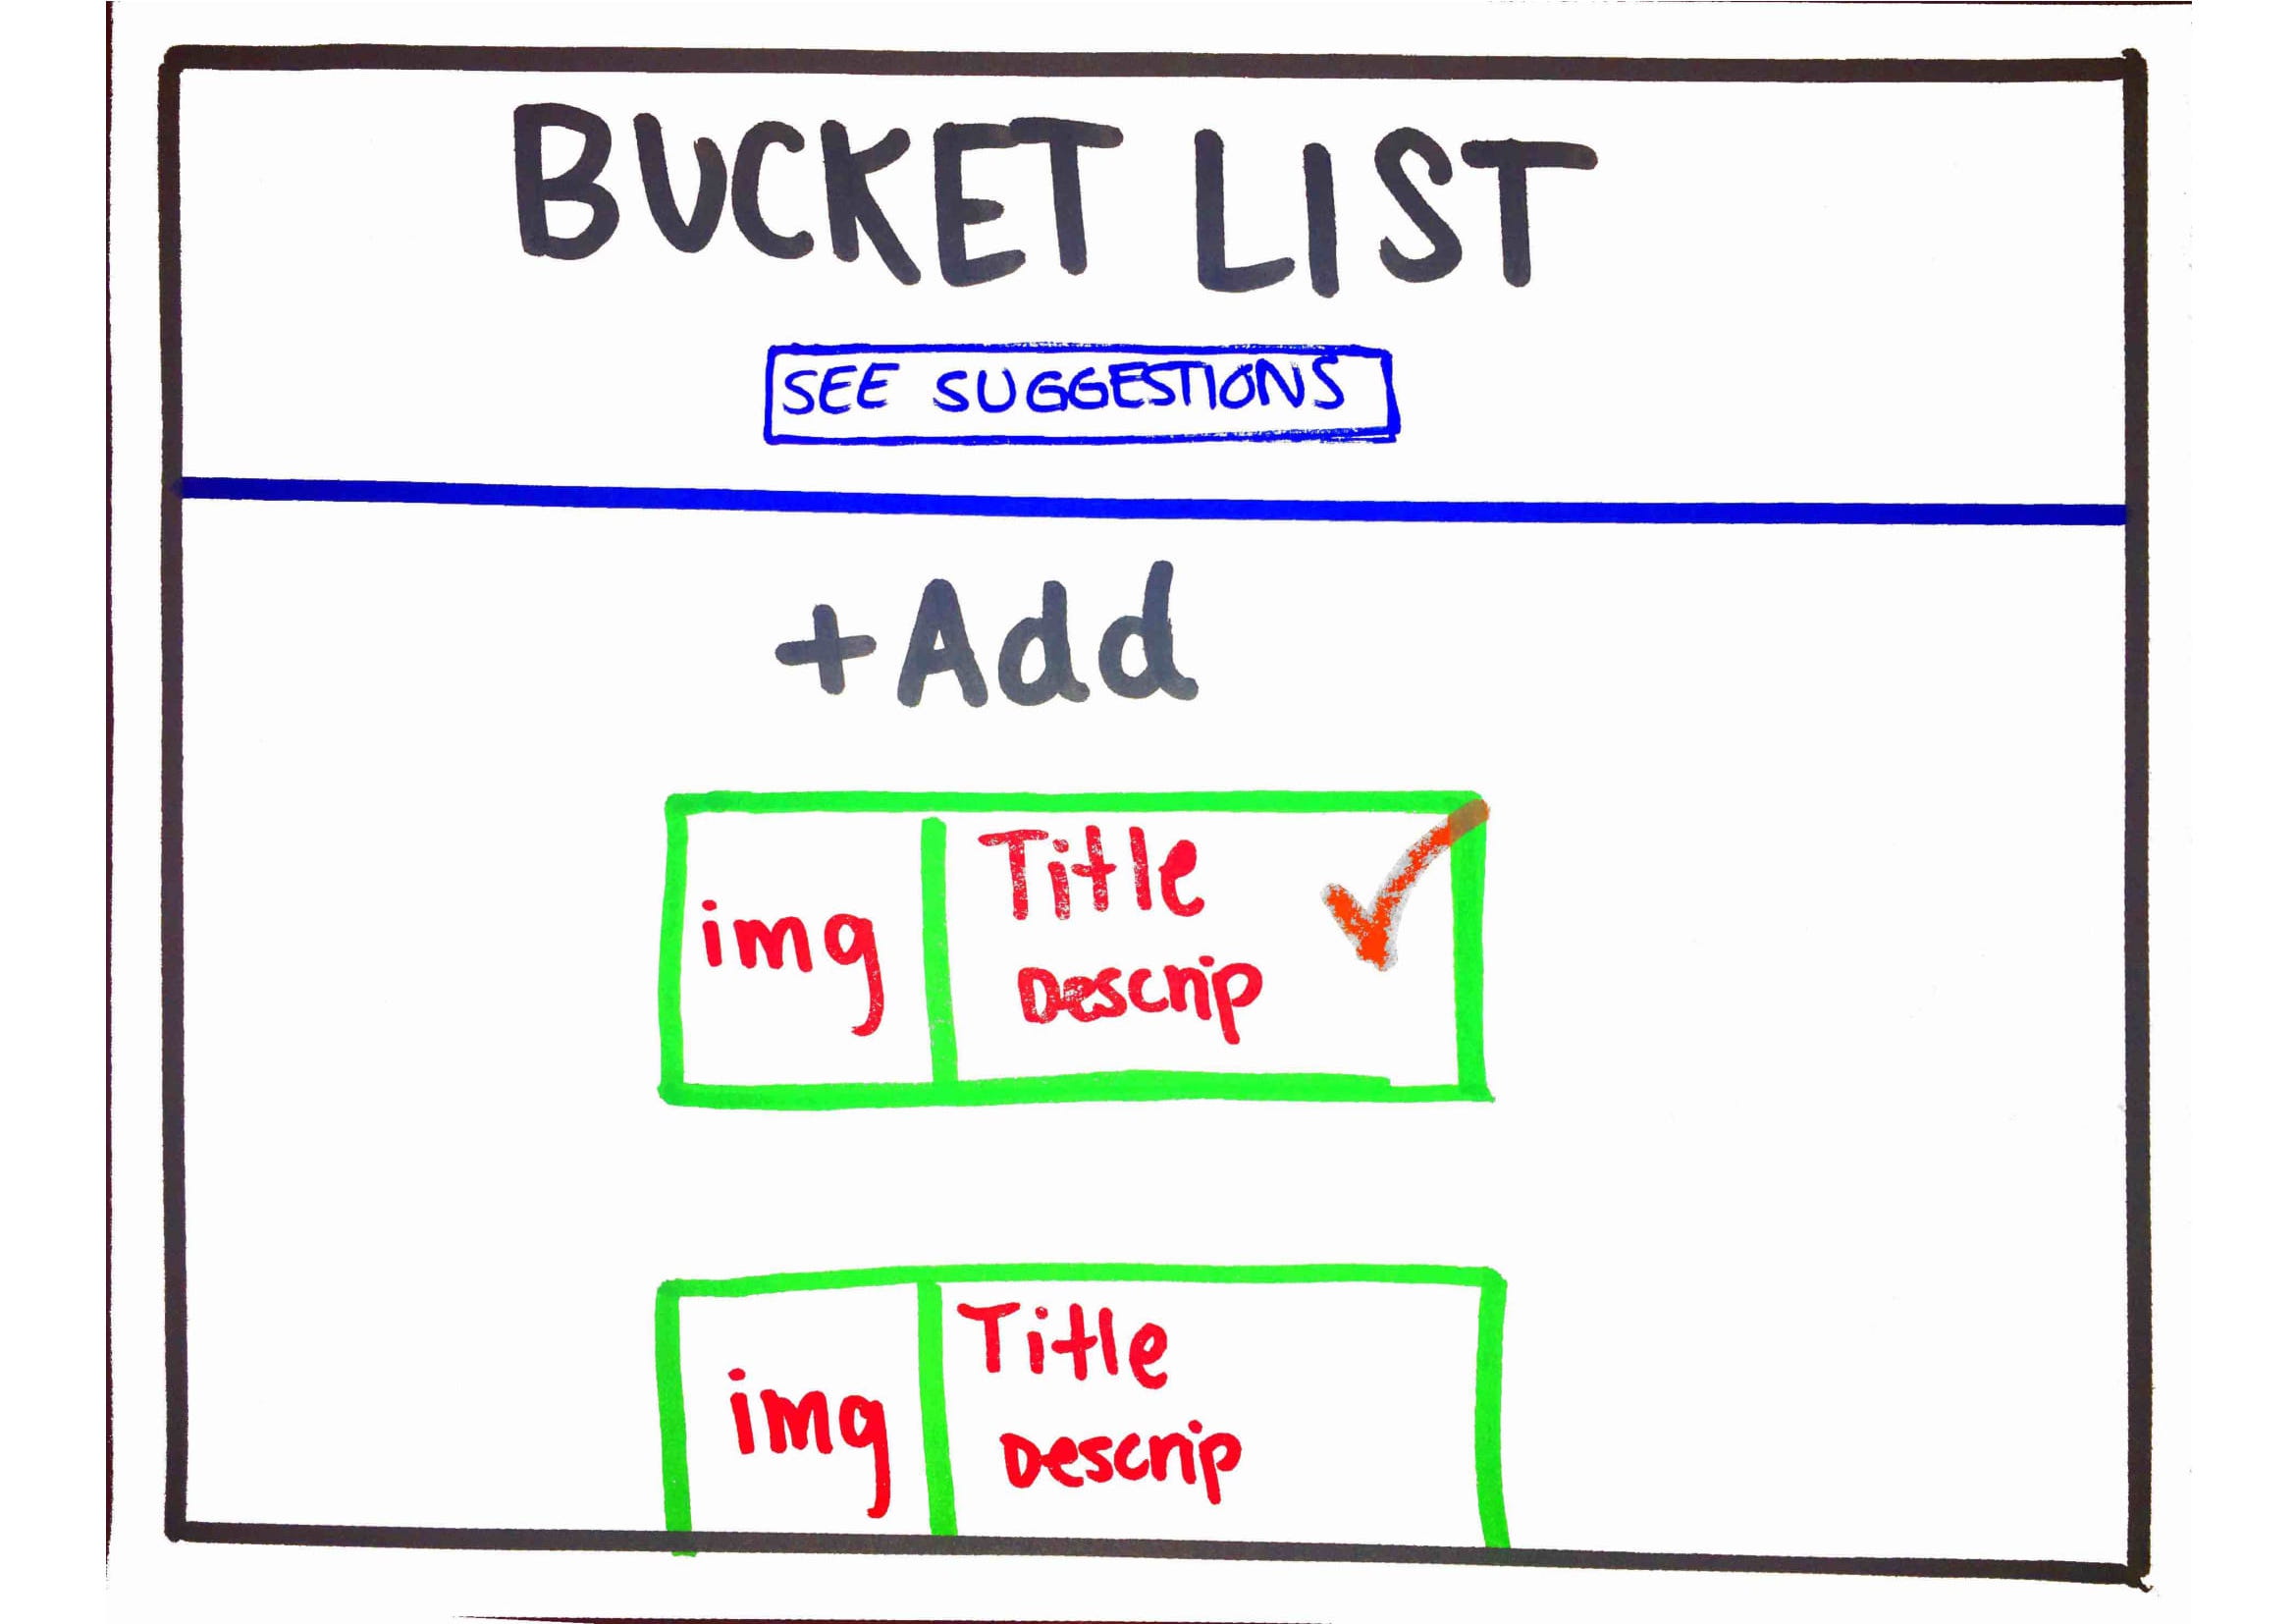 BUCKET LIST
SEE SUGGESTIONS
+Add
img
Title
Descrip
img
Title
Descrip